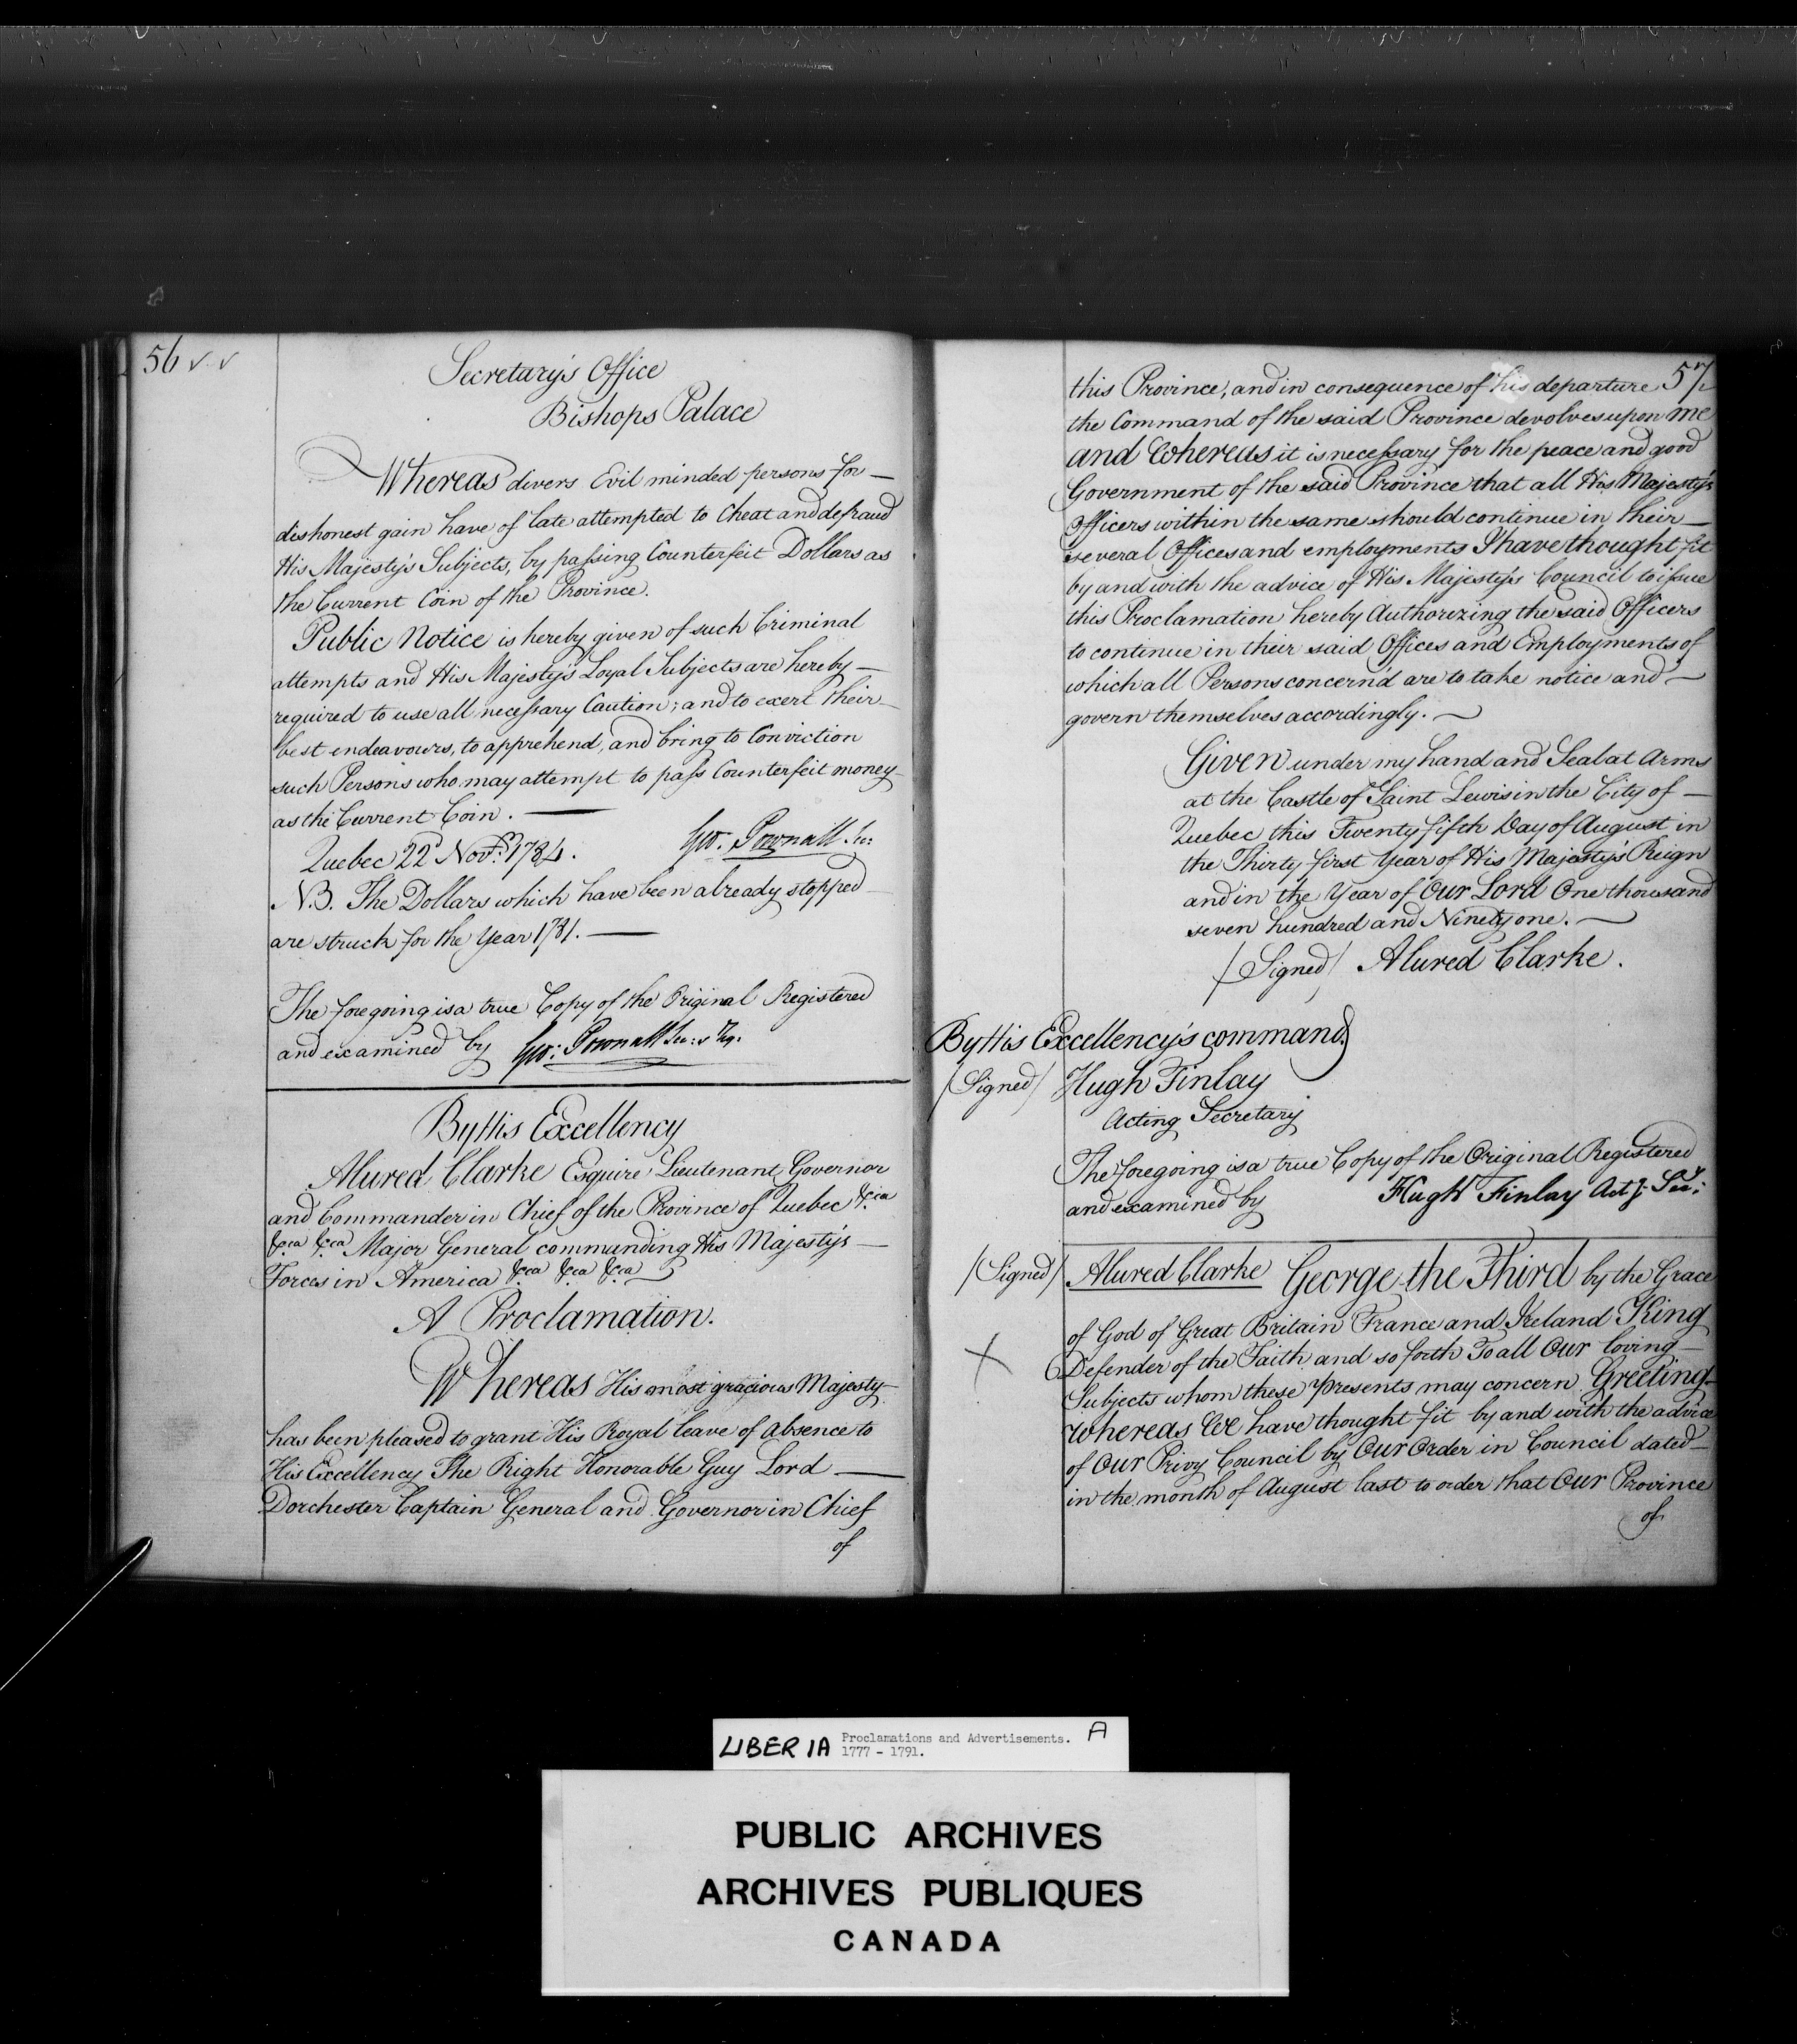 56
Secretary's Office
Bishops Palace
Whereas divers Evil minded persons for —
dishonest gain have of late attempted to Cheat and defraud
His Majesty's Subjects, by passing Counterfeit Dollars as
the Current Coin of the Province.
Public Notice is hereby given of such Criminal
attempts and His Majesty's Loyal Subjects are hereby —
required to use all necessary Caution; and to exert their —
best endeavours, to apprehend, and bring to Conviction
such Persons who may attempt to pass Counterfeit money —
as the Current Coin. —
Quebec 22d Novr. 1784. Geo. Pownall Sec:
N.B. The Dollars which have been already stopped —
are struck for the Year 1781. —
The foregoing is a true Copy of the Original Registered
and examined by Geo: Pownall Sec: & Reg.
By His Excellency
Alured Clarke Esquire Lieutenant Governor
and Commander in Chief of the Province of Quebec &ca
&ca &ca Major General commanding His Majesty's —
Forces in America &ca &ca &ca
A Proclamation.
Whereas His most gracious Majesty —
has been pleased to grant His Royal leave of absence to
His Excellency The Right Honorable Guy Lord —
Dorchester Captain General and Governor in Chief
of
57
this Province, and in consequence of his departure
the Command of the said Province devolves upon me
and Whereas it is necessary for the peace and good
Government of the said Province that all His Majesty's
Officers within the same should continue in their —
several Offices and employments I have thought fit
by and with the advice of His Majesty's Council to issue
this Proclamation hereby Authorizing the said Officers
to continue in their said Offices and Employments of
which all Persons concernd are to take notice and —
govern themselves accordingly. —
Given under my hand and Seal at Arms
at the Castle of Saint Lewis in the City of —
Quebec this Twenty fifth Day of August in
the Thirty first Year of His Majesty's Reign
and in the Year of Our Lord One thousand
seven hundred and Ninety one. —
/Signed/ Alured Clarke.
By His Excellency's command.
/Signed/ Hugh Finlay
Acting Secretary
The foregoing is a true Copy of the Original Registered
and examined by Hugh Finlay Actg. Secy:
/Signed/ Alured Clarke George the Third by the Grace
of God of Great Britain France and Ireland King
Defender of the Faith and so forth To all Our loving —
Subjects whom these Presents may concern Greeting —
Whereas We have thought fit by and with the advice
of Our Privy Council by Our Order in Council dated —
in the month of August last to order that Our Province
of
LIBER 1A Proclamations and Advertisements. A
1777 - 1791.
PUBLIC ARCHIVES
ARCHIVES PUBLIQUES
CANADA